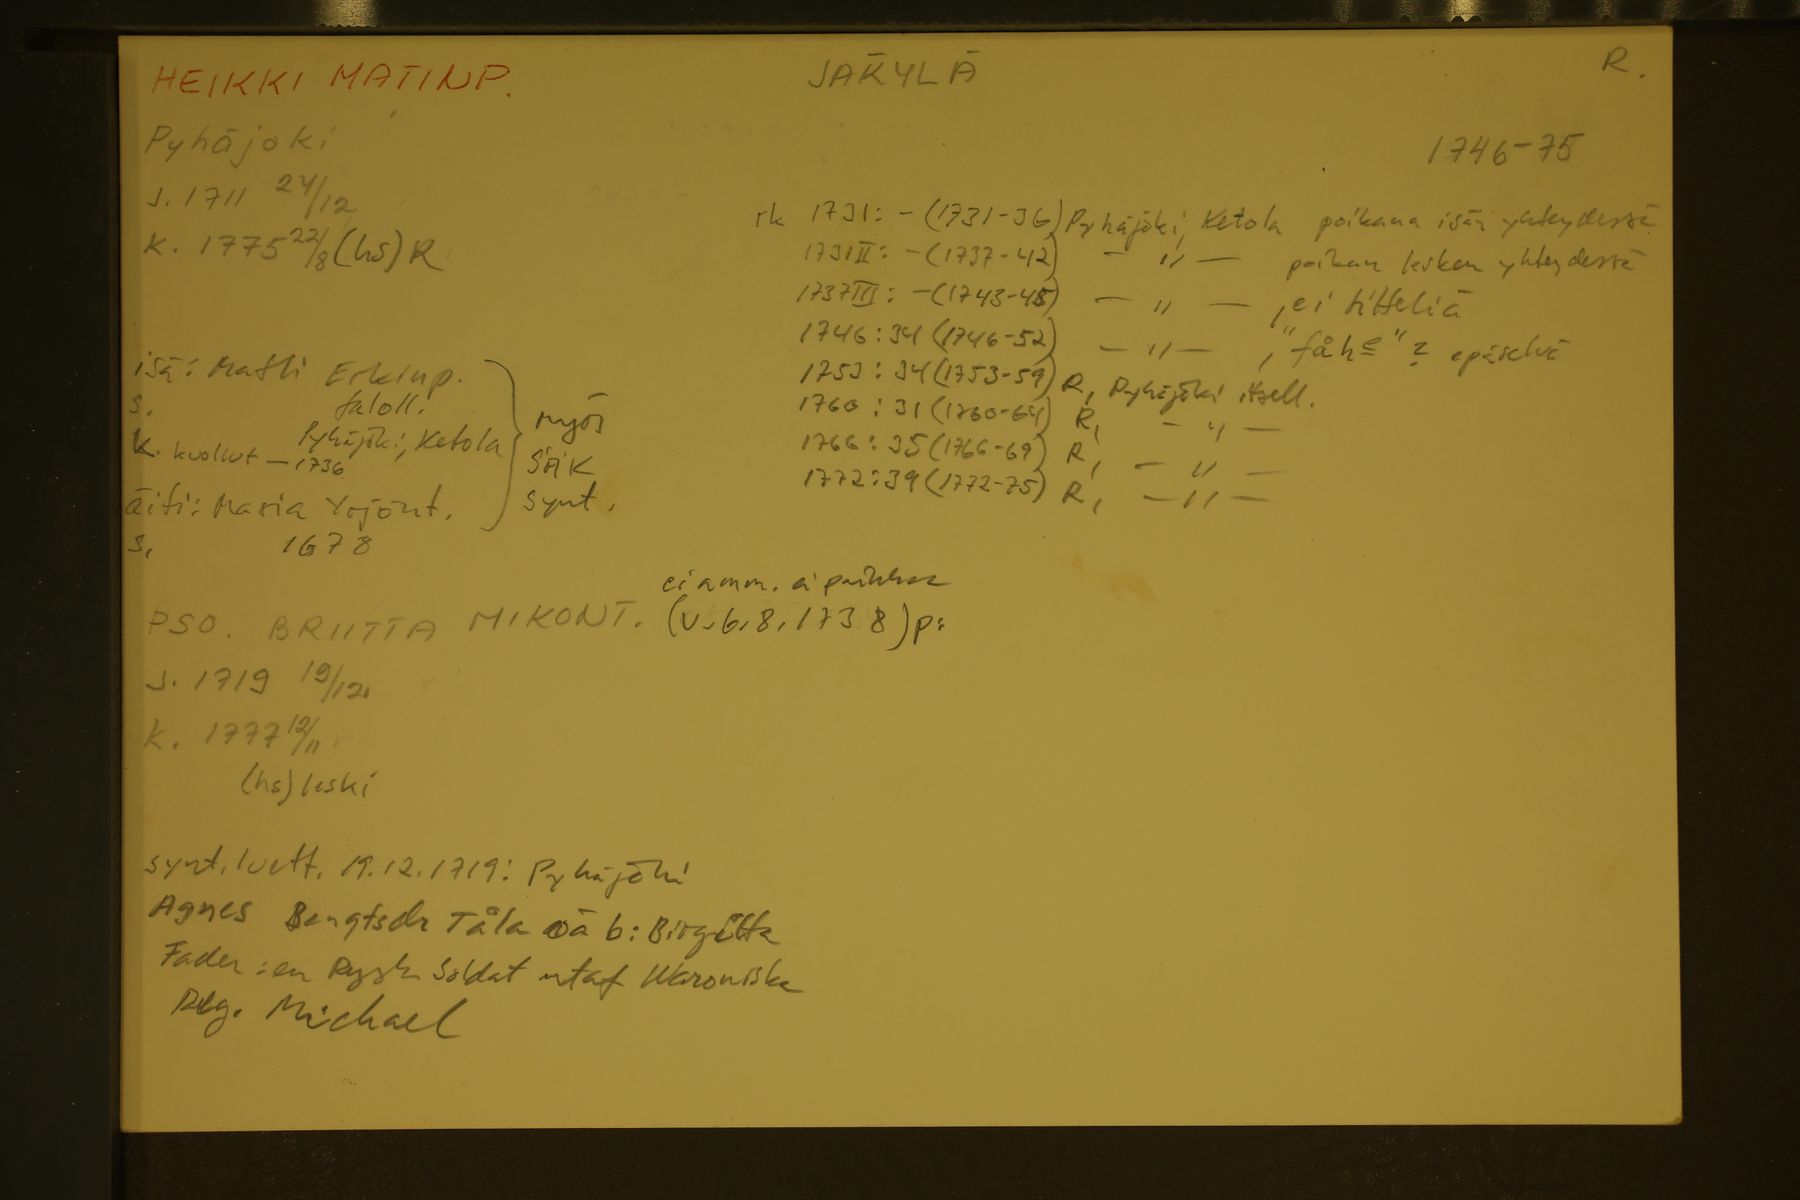 HEIKKI MATINP.
JÄKYLÄ
R.
Pyhäjoki
1746-75
s. 1711 24/12
k. 1775 22/8 (hs) R
rk 1731: - (1731-36) Pyhäjöki, Ketola poikana isän yhteydessä
1731 II: - (1737-42) - " - poikan lesken yhteydessä
1737 III: - (1743-45) - " - , ei titteliä
1746: 34 (1746-52) - " - , "fåhe" ? epäselvä
1753: 34 (1753-59) R, Pyhäjöki itsell.
1760: 31 (1760-64) R, - " -
1766: 35 (1766-69) R, - " -
1772: 39 (1772-75) R, - " -
isä: Matti Erkinp.
s. taloll.
Pyhäjöki, Ketola
k. kuollut - 1736
äiti: Maria Yrjönt.
s. 1678
myös
SÄK
synt.
ei amm. ei paikkaa
PSO. BRIITTA MIKONT. (v. 6.8.1738) p:
s. 1719 19/12
k. 1777 12/11
(hs) leski
synt. luett. 19.12.1719: Pyhäjöki
Agnes Bengtsdr Tåla oä b: Birgitta
Fader: en Rysk Soldat utaf Waroniska
Reg. Michael